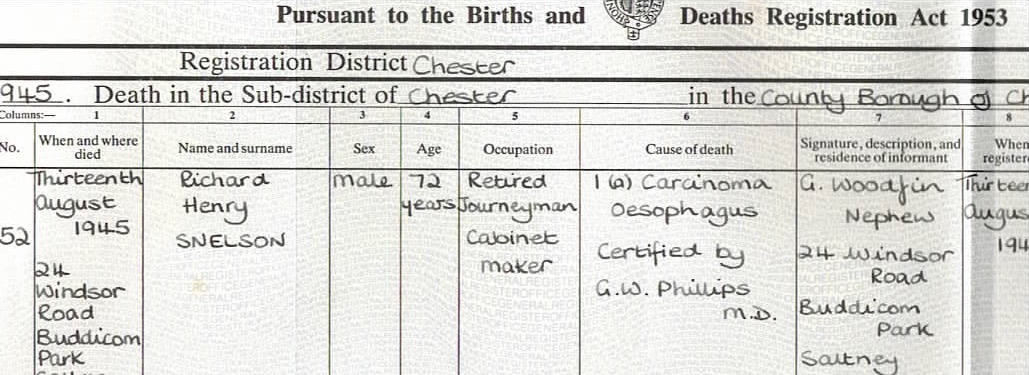 Pursuant to the Births and Deaths Registration Act 1953
Registration District Chester
945. Death in the Sub-district of Chester in the County Borough of Ch
Columns:— 1 2 3 4 5 6 7 8
No. When and where died Name and surname Sex Age Occupation Cause of death Signature, description, and residence of informant When register
52
Thirteenth
August
1945
24
Windsor
Road
Buddicom
Park
Richard
Henry
SNELSON
Male
72
years
Retired
Journeyman
Cabinet
maker
1 (a) Carcinoma
Oesophagus
Certified by
G.W. Phillips
M.D.
G. Woodfin
Nephew
24 Windsor
Road
Buddicom
Park
Saltney
Thirtee
Augus
194